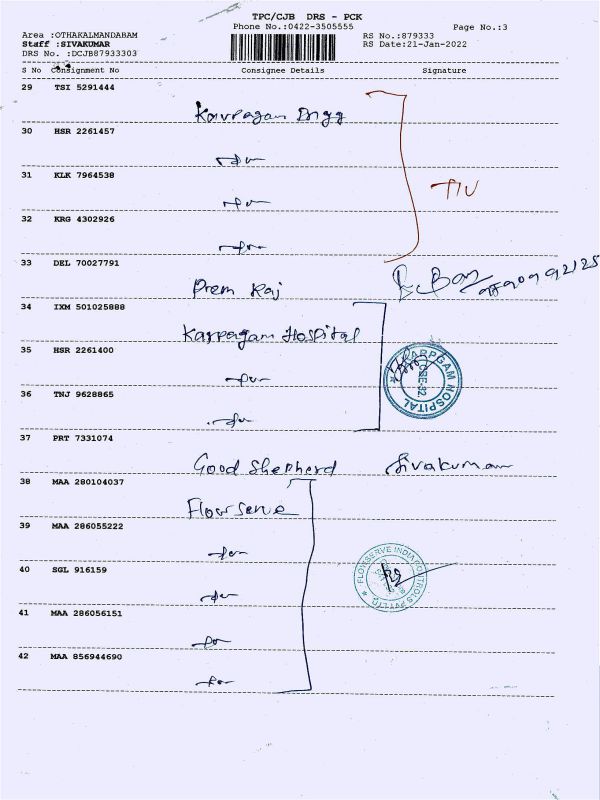 TPC/CJB DRS - PCK
Phone No.:0422-3505555
Page No.:3
Area :OTHAKALMANDABAM
RS No.:879333
Staff :SIVAKUMAR
RS Date:21-Jan-2022
DRS No. :DCJB87933303
S No Consignment No Consignee Details Signature
29 TSI 5291444
Karpagam Engg
30 HSR 2261457
-do-
31 KLK 7964538
-do-
32 KRG 4302926
-do-
33 DEL 70027791
Prem Raj
34 IXM 501025888
Karpagam Hospital
35 HSR 2261400
-do-
KARPGAM HOSPITAL
36 TNJ 9628865
-do-
37 PRT 7331074
Good Shepherd Sivakumar
38 MAA 280104037
Flowserve
39 MAA 286055222
-do-
FLOWSERVE INDIA CONTROLS PVT LTD
40 SGL 916159
-do-
41 MAA 286056151
-do-
42 MAA 856944690
-do-